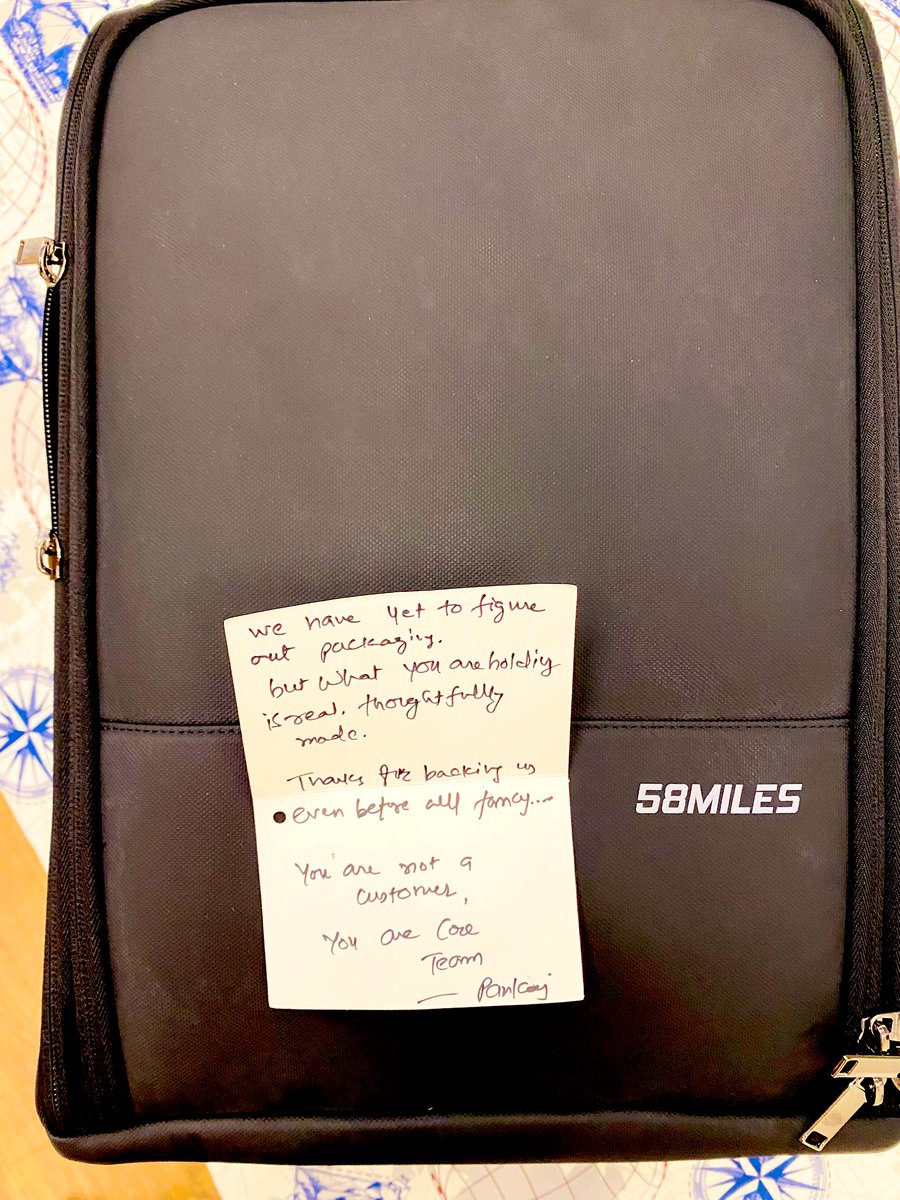 we have yet to figure
out packaging.
but what you are holding
is real. thoughtfully
made.
Thanks for backing us
even before all fancy....
You are not a
customer,
You are Core
Team
— Pankaj
58MILES